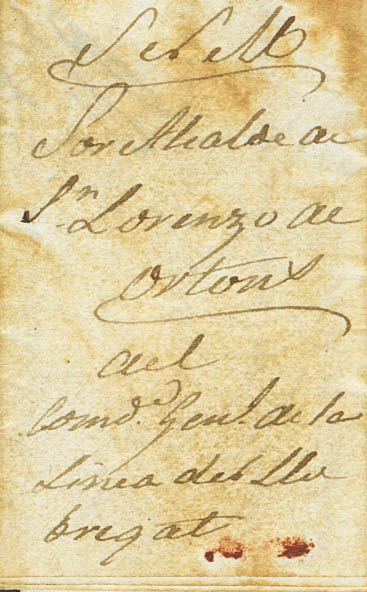 S. N. M
Sor Alcalde de
Sn. Lorenzo de
Ortons
del
Comde. Genl. de la
Linea del Llo
bregat